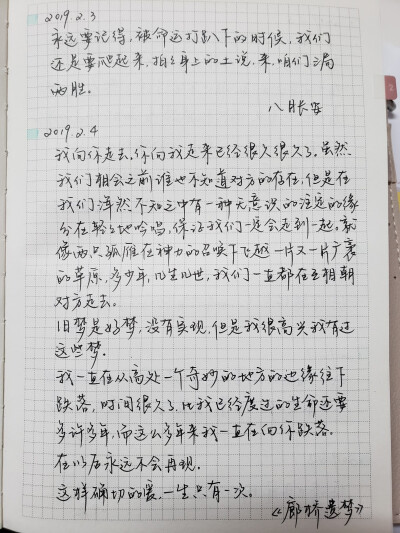 2019.2.3
永远要记得，被命运打趴下的时候，我们
还是要爬起来，拍拍身上的土说，来，咱们三局
两胜。
八月长安
2019.2.4
我向你走去，你向我走来已经很久很久了。虽然
我们相会之前谁也不知道对方的存在，但是在
我们浑然不知之中有一种无意识的注定的缘
分在轻轻地吟唱，保证我们一定会走到一起。就
像两只孤雁在神力的召唤下飞越一片又一片广袤
的草原，多少年，几生几世，我们一直都在互相朝
对方走去。
旧梦是好梦，没有实现，但是我很高兴我有过
这些梦。
我一直在从高处一个奇妙的地方的边缘往下
跌落，时间很久了，比我已经度过的生命还要
多许多年，而这么多年来我一直在向你跌落。
在以后永远不会再现。
这样确切的爱，一生只有一次。
《廊桥遗梦》